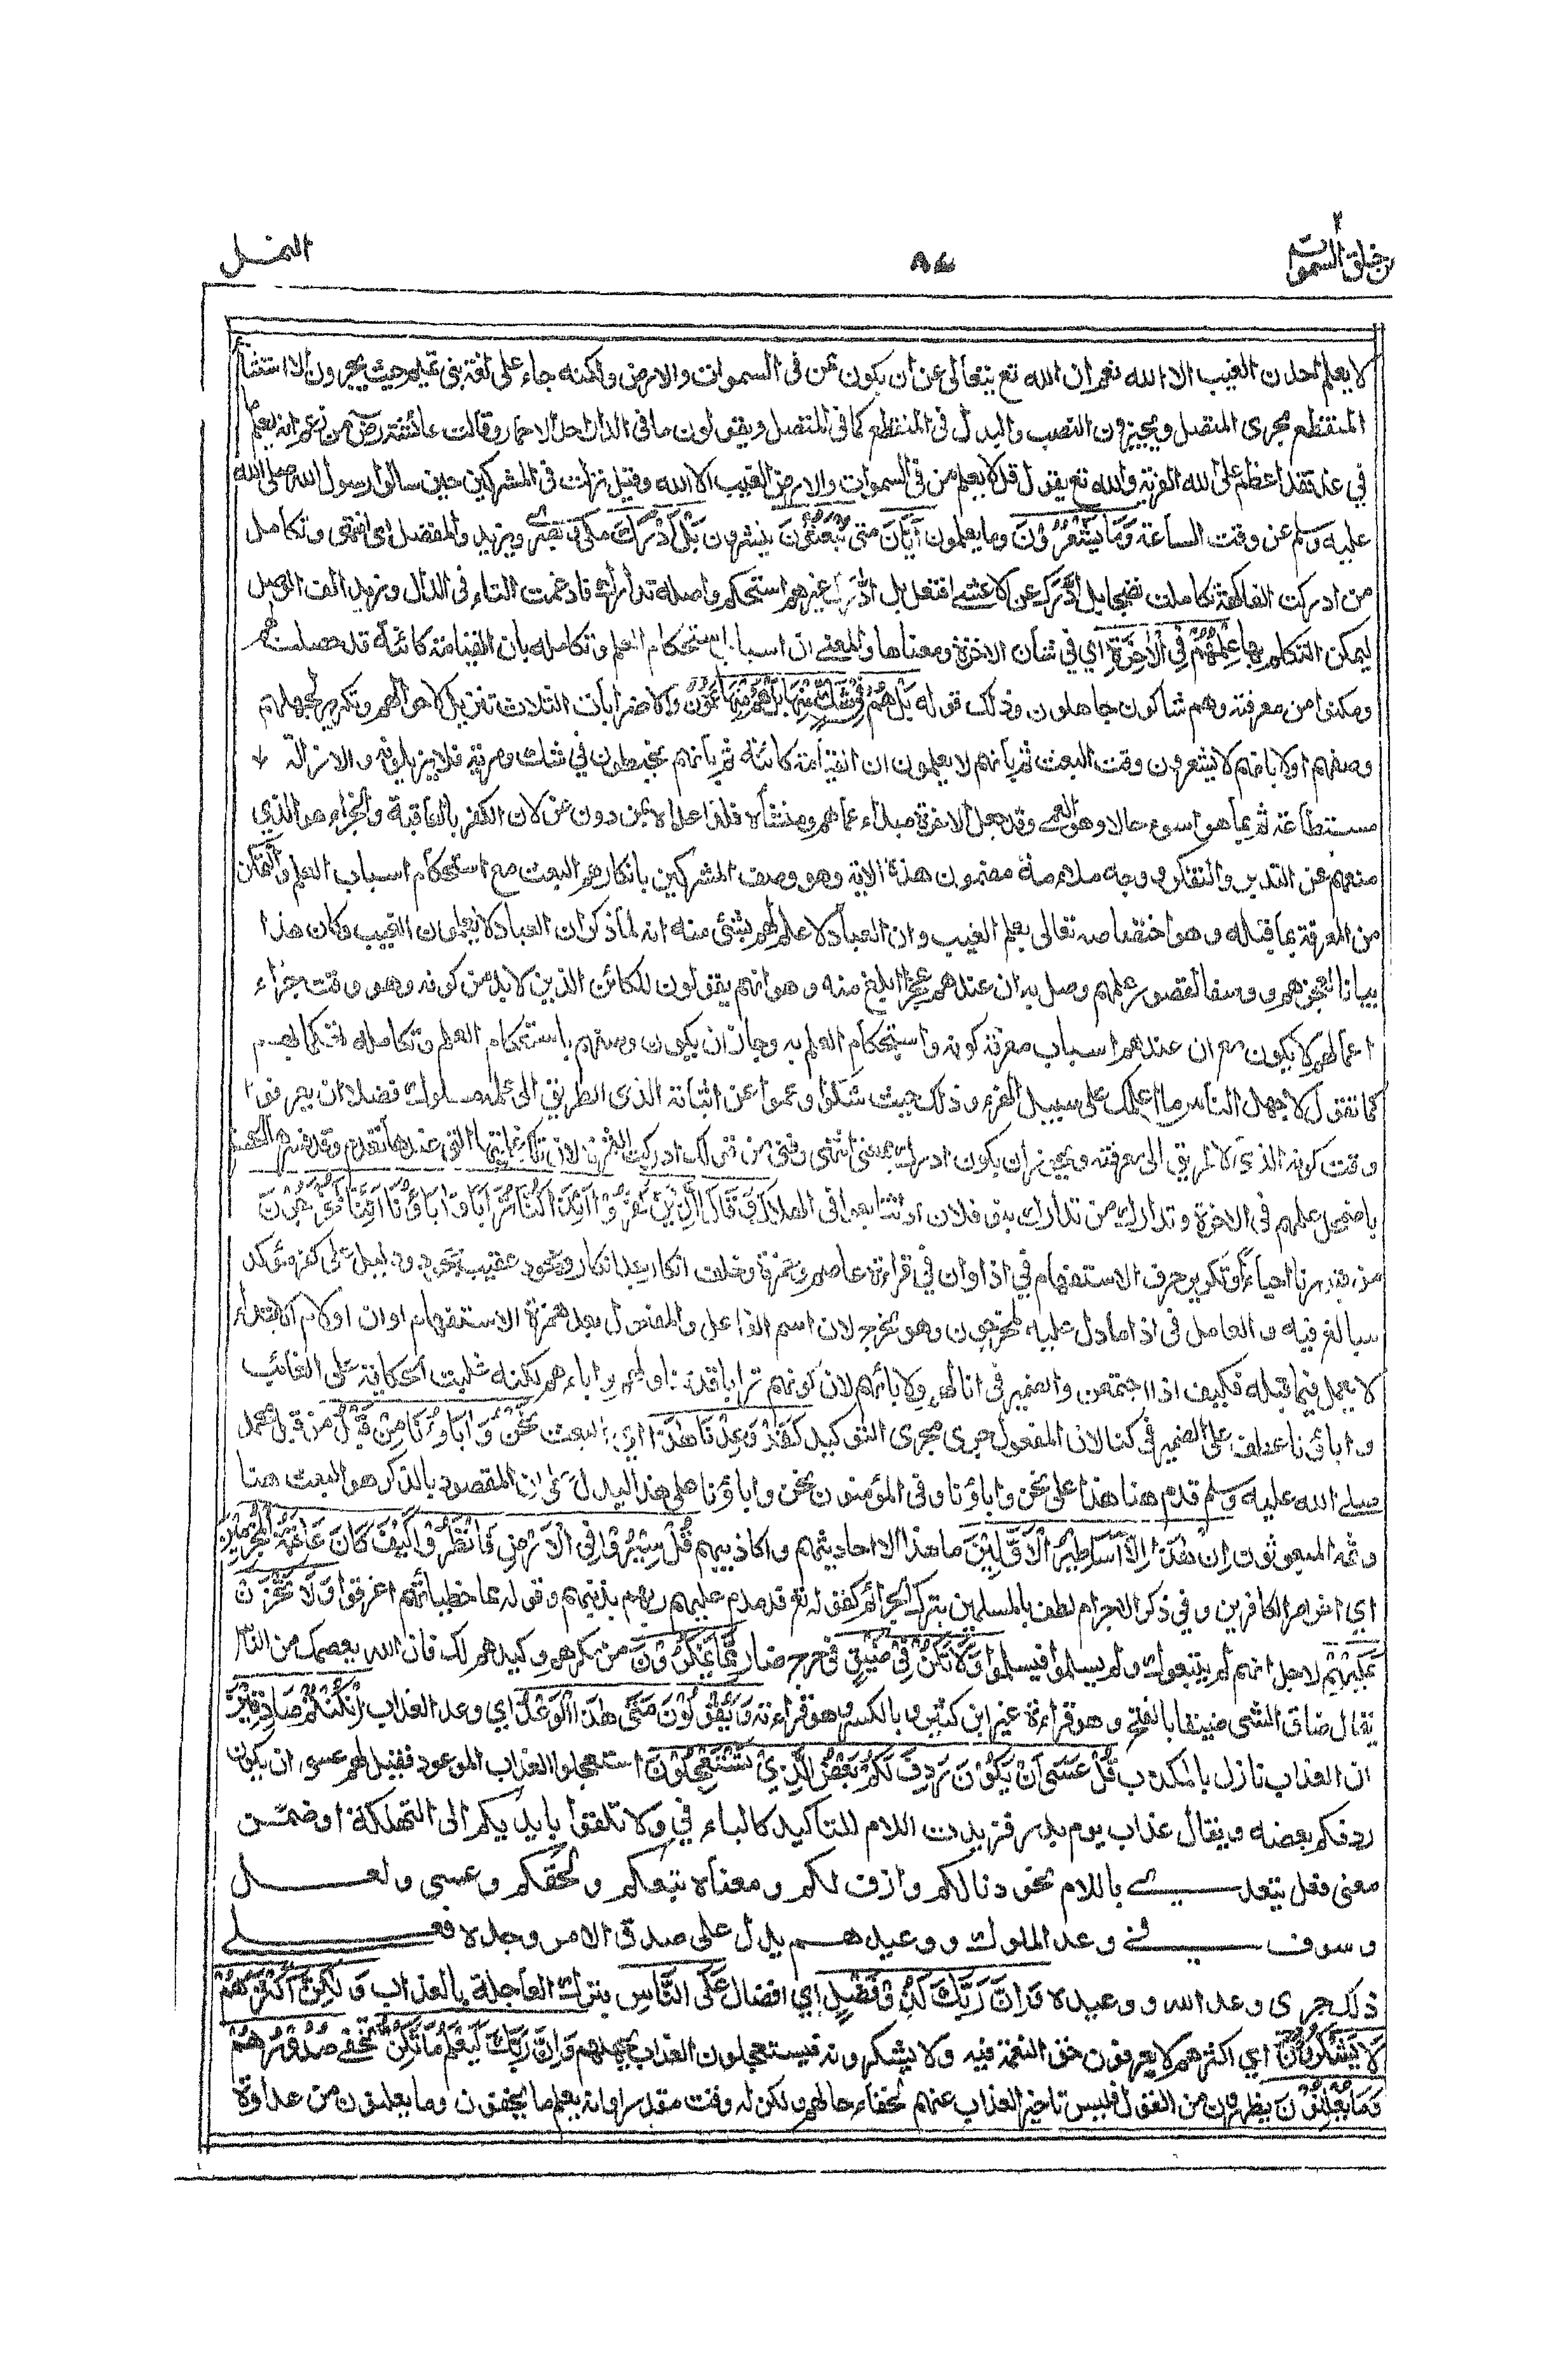 من خلق السموات ٢
٨٤
النمل
لا يعلم احد ن الغيب الا الله نعم ان الله تع يتعالى عن ان يكون ممن فى السموات والارض ولكنه جاء على لغة بنى تميم حيث يجرون الاستثناء
المنقطع مجرى المتصل ويجيزون النصب والبدل فى المنقطع كما فى المتصل ويقولون ما فى الدار احد الا حمار وقالت عائشة رض من زعم انه يعلم ما
في غد فقد اعظم على الله الفرية والله تع يقول قل لا يعلم من فى السموات والارض الغيب الا الله وقيل نزلت فى المشركين حين سالوا رسول الله صلى الله
عليه وسلم عن وقت الساعة وَمَا يَشْعُرُوْنَ وما يعلمون اَيَّانَ متى يُبْعَثُوْنَ ينشرون بَلْ اَدْرَكَ مكى بصرى ويزيد والمفضل اى انتهى وتكامل
من ادركت الفاكهة تكاملت نضجا بل ادّرك عن الاعشے افتعل بل ادّارك غيرهم استحكم واصله تدارك فادغمت التاء فى الدال وزيد الف الوصل
ليمكن التكلم بها عِلْمُهُمْ فِي الْاٰخِرَةِ اي في شان الاخرة ومعناها والمعنے ان اسباب استحكام العلم وتكامله بان القيامة كائنة قد حصلت لهم
ومكنوا من معرفته وهم شاكون جاهلون وذلك قوله بَلْ هُمْ فِيْ شَكٍّ مِّنْهَا بَلْ هُمْ مِّنْهَا عَمُوْنَ والاضرابات الثلاث تنزيل لاحوالهم وتكرير لجهلهم
وصفهم اولا بانهم لا يشعرون وقت البعث ثم بانهم لا يعلمون ان القيامة كائنة ثم بانهم يخبطون في شك ومرية فلا يزيلونه والازالة
مستطاعة ثم بما هو اسوء حالا وهو العمے وقد جعل الاخرة مبداء عماهم ومنشأه فلذا عداه بمن دون عن لان الكفر بالعاقبة والجزاء هو الذي
منعهم عن التدبر والتفكر ووجه ملاءمة مضمون هذه الاية وهو وصف المشركين بانكارهم البعث مع استحكام اسباب العلم والتمكن
من المعرفة بما قبله وهو اختصاصه تعالى بعلم الغيب وان العباد لا علم لهم بشئ منه انه لما ذكر ان العباد لا يعلمون الغيب وكان هذا
بيانا لعجزهم ووصفا لقصور علمهم وصل به ان عندهم عجزا ابلغ منه وهو انهم يقولون للكائن الذين لا بد من كونه وهو وقت جزاء
اعمالهم لا يكون مع ان عندهم اسباب معرفة كونه واستحكام العلم به وجاز ان يكون وصفهم باستحكام العلم وتكامله تهكما بهم
كما تقول لاجهل الناس ما اعلمك على سبيل الهزء وذلك حيث شكوا وعموا عن اثباته الذى الطريق الى علمه مسلوك فضلا ان يعرفوا
وقت كونه الذى لا طريق الى معرفته ويجوز ان يكون ادرك بمعنى انتهى وفنى من قولك ادركت الثمرة لان تلك غايتها التى عندها تعدم وقد فسرها الحسن
باضمحل علمهم فى الاخرة وتدارك من تدارك بنو فلان اذ تتابعوا فى الهلاك وَقَالَ الَّذِيْنَ كَفَرُوْا ءَاِذَا كُنَّا تُرَابًا وَّاٰبَاؤُنَا اَئِنَّا لَمُخْرَجُوْنَ
من قبورنا احياء وتكرير حرف الاستفهام في اذا وان في قراءة عاصم وحمزة وخلف انكار بعد انكار وجحود عقيب جحود ودليل على كفر مؤكد
مبالغ فيه والعامل فى اذا ما دل عليه لمخرجون وهو نخرج لان اسم الفاعل والمفعول بعد همزة الاستفهام او ان او لام الابتداء
لا يعمل فيما قبله فكيف اذا اجتمعن والضمير فى انا لهم ولابائهم لان كونهم ترابا قد تناولهم واباءهم لكنه غلبت الحكاية على الغائب
واباؤنا عطف على الضمير فى كنا لان المفعول جرى مجرى التوكيد لَقَدْ وُعِدْنَا هٰذَا اي البعث نَحْنُ وَاٰبَاؤُنَا مِنْ قَبْلُ من قبل محمد
صلے الله عليه وسلم قدم هنا هذا على نحن واباؤنا وفى المؤمنون نحن واباؤنا على هذا ليدل على ان المقصود بالذكر هو البعث هنا
وثمه المبعوثون اِنْ هٰذَا اِلَّا اَسَاطِيْرُ الْاَوَّلِيْنَ ما هذا الا احاديثهم واكاذيبهم قُلْ سِيْرُوْا فِي الْاَرْضِ فَانْظُرُوْا كَيْفَ كَانَ عَاقِبَةُ الْمُجْرِمِيْنَ
اي اخر امر الكافرين وفي ذكر الاجرام لطف بالمسلمين بترك الجرائم كقوله تع فدمدم عليهم ربهم بذنبهم وقوله مما خطيأتهم اغرقوا وَلَا تَحْزَنْ
عَلَيْهِمْ لاجل انهم لم يتبعوك ولم يسلموا فيسلموا وَلَا تَكُنْ فِيْ ضَيْقٍ فى حرج صدر مِّمَّا يَمْكُرُوْنَ من مكرهم وكيدهم لك فان الله يعصمك من الناس
يقال ضاق الشئ ضيقا بالفتح وهو قراءة غير ابن كثير وبالكسر وهو قراءته وَيَقُوْلُوْنَ مَتٰى هٰذَا الْوَعْدُ اي وعد العذاب اِنْ كُنْتُمْ صَادِقِيْنَ
ان العذاب نازل بالمكذب قُلْ عَسٰى اَنْ يَّكُوْنَ رَدِفَ لَكُمْ بَعْضُ الَّذِيْ تَسْتَعْجِلُوْنَ استعجلوا العذاب الموعود فقيل لهم عسى ان يكون
ردفكم بعضه ويقال عذاب يوم بدر فزيدت اللام للتاكيد كالباء في ولا تلقوا بايديكم الى التهلكة او ضمن
معنى فعل يتعدے باللام نحو دنا لكم وازف لكم ومعناه تبعكم ولحقكم وعسى ولعل
وسوف فے وعد الملوك ووعيدهم يدل على صدق الامر وجده فعلے
ذلك جرى وعد الله ووعيده وَاِنَّ رَبَّكَ لَذُوْ فَضْلٍ اي افضال عَلَى النَّاسِ بترك العاجلة بالعذاب وَلٰكِنَّ اَكْثَرَهُمْ
لَا يَشْكُرُوْنَ اي اكثرهم لا يعرفون حق النعمة فيه ولا يشكرونه فيستعجلون العذاب بجهلهم وَاِنَّ رَبَّكَ لَيَعْلَمُ مَا تُكِنُّ تخفے صُدُوْرُهُمْ
وَمَا يُعْلِنُوْنَ يظهرون من القول فليس تاخير العذاب عنهم لخفاء حالهم ولكن له وقت مقدر او انه يعلم ما يخفون وما يعلنون من عداوة